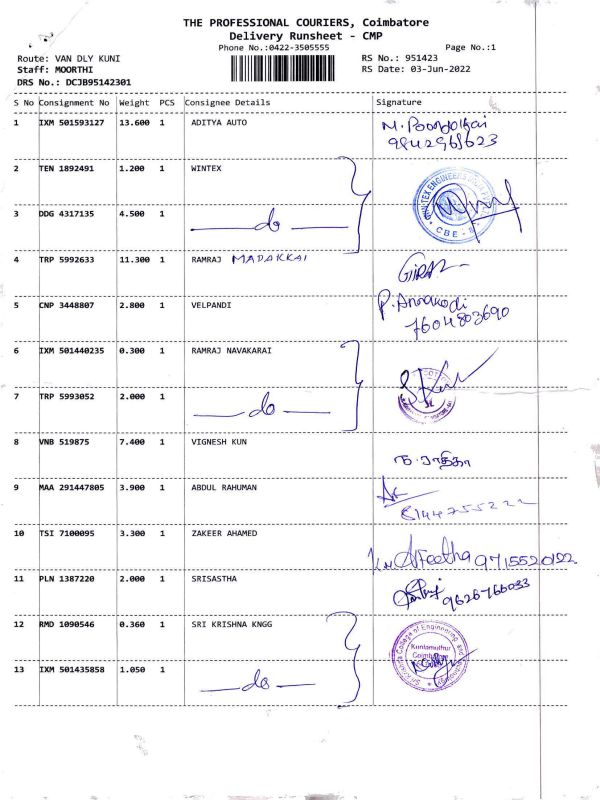 THE PROFESSIONAL COURIERS, Coimbatore
Delivery Runsheet - CMP
Phone No.:0422-3505555
Page No.:1
Route: VAN DLY KUNI
RS No.: 951423
Staff: MOORTHI
RS Date: 03-Jun-2022
DRS No.: DCJB95142301
S No Consignment No Weight PCS Consignee Details Signature
1 IXM 501593127 13.600 1 ADITYA AUTO
9842968623
2 TEN 1892491 1.200 1 WINTEX
3 DDG 4317135 4.500 1 —do—
CBE
4 TRP 5992633 11.300 1 RAMRAJ MADAKKAI
5 CNP 3448807 2.800 1 VELPANDI
7604803690
6 IXM 501440235 0.300 1 RAMRAJ NAVAKARAI
7 TRP 5993052 2.000 1 —do—
8 VNB 519875 7.400 1 VIGNESH KUN
ந. ராதிகா
9 MAA 291447805 3.900 1 ABDUL RAHUMAN
8144755222
10 TSI 7100095 3.300 1 ZAKEER AHAMED
9715520122
11 PLN 1387220 2.000 1 SRISASTHA
9626766033
12 RMD 1090546 0.360 1 SRI KRISHNA KNGG
Sri Krishna College of Engineering and Technology
Kuniamuthur
Coimbatore
13 IXM 501435858 1.050 1 —do—